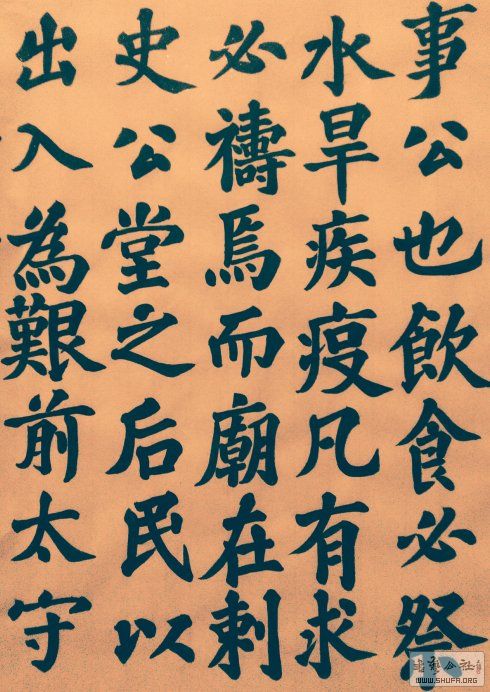 事公也飲食必祭
水旱疾疫凡有求
必禱焉而廟在刺
史公堂之后民以
出入為艱前太守
WWW.SHUFA.ORG